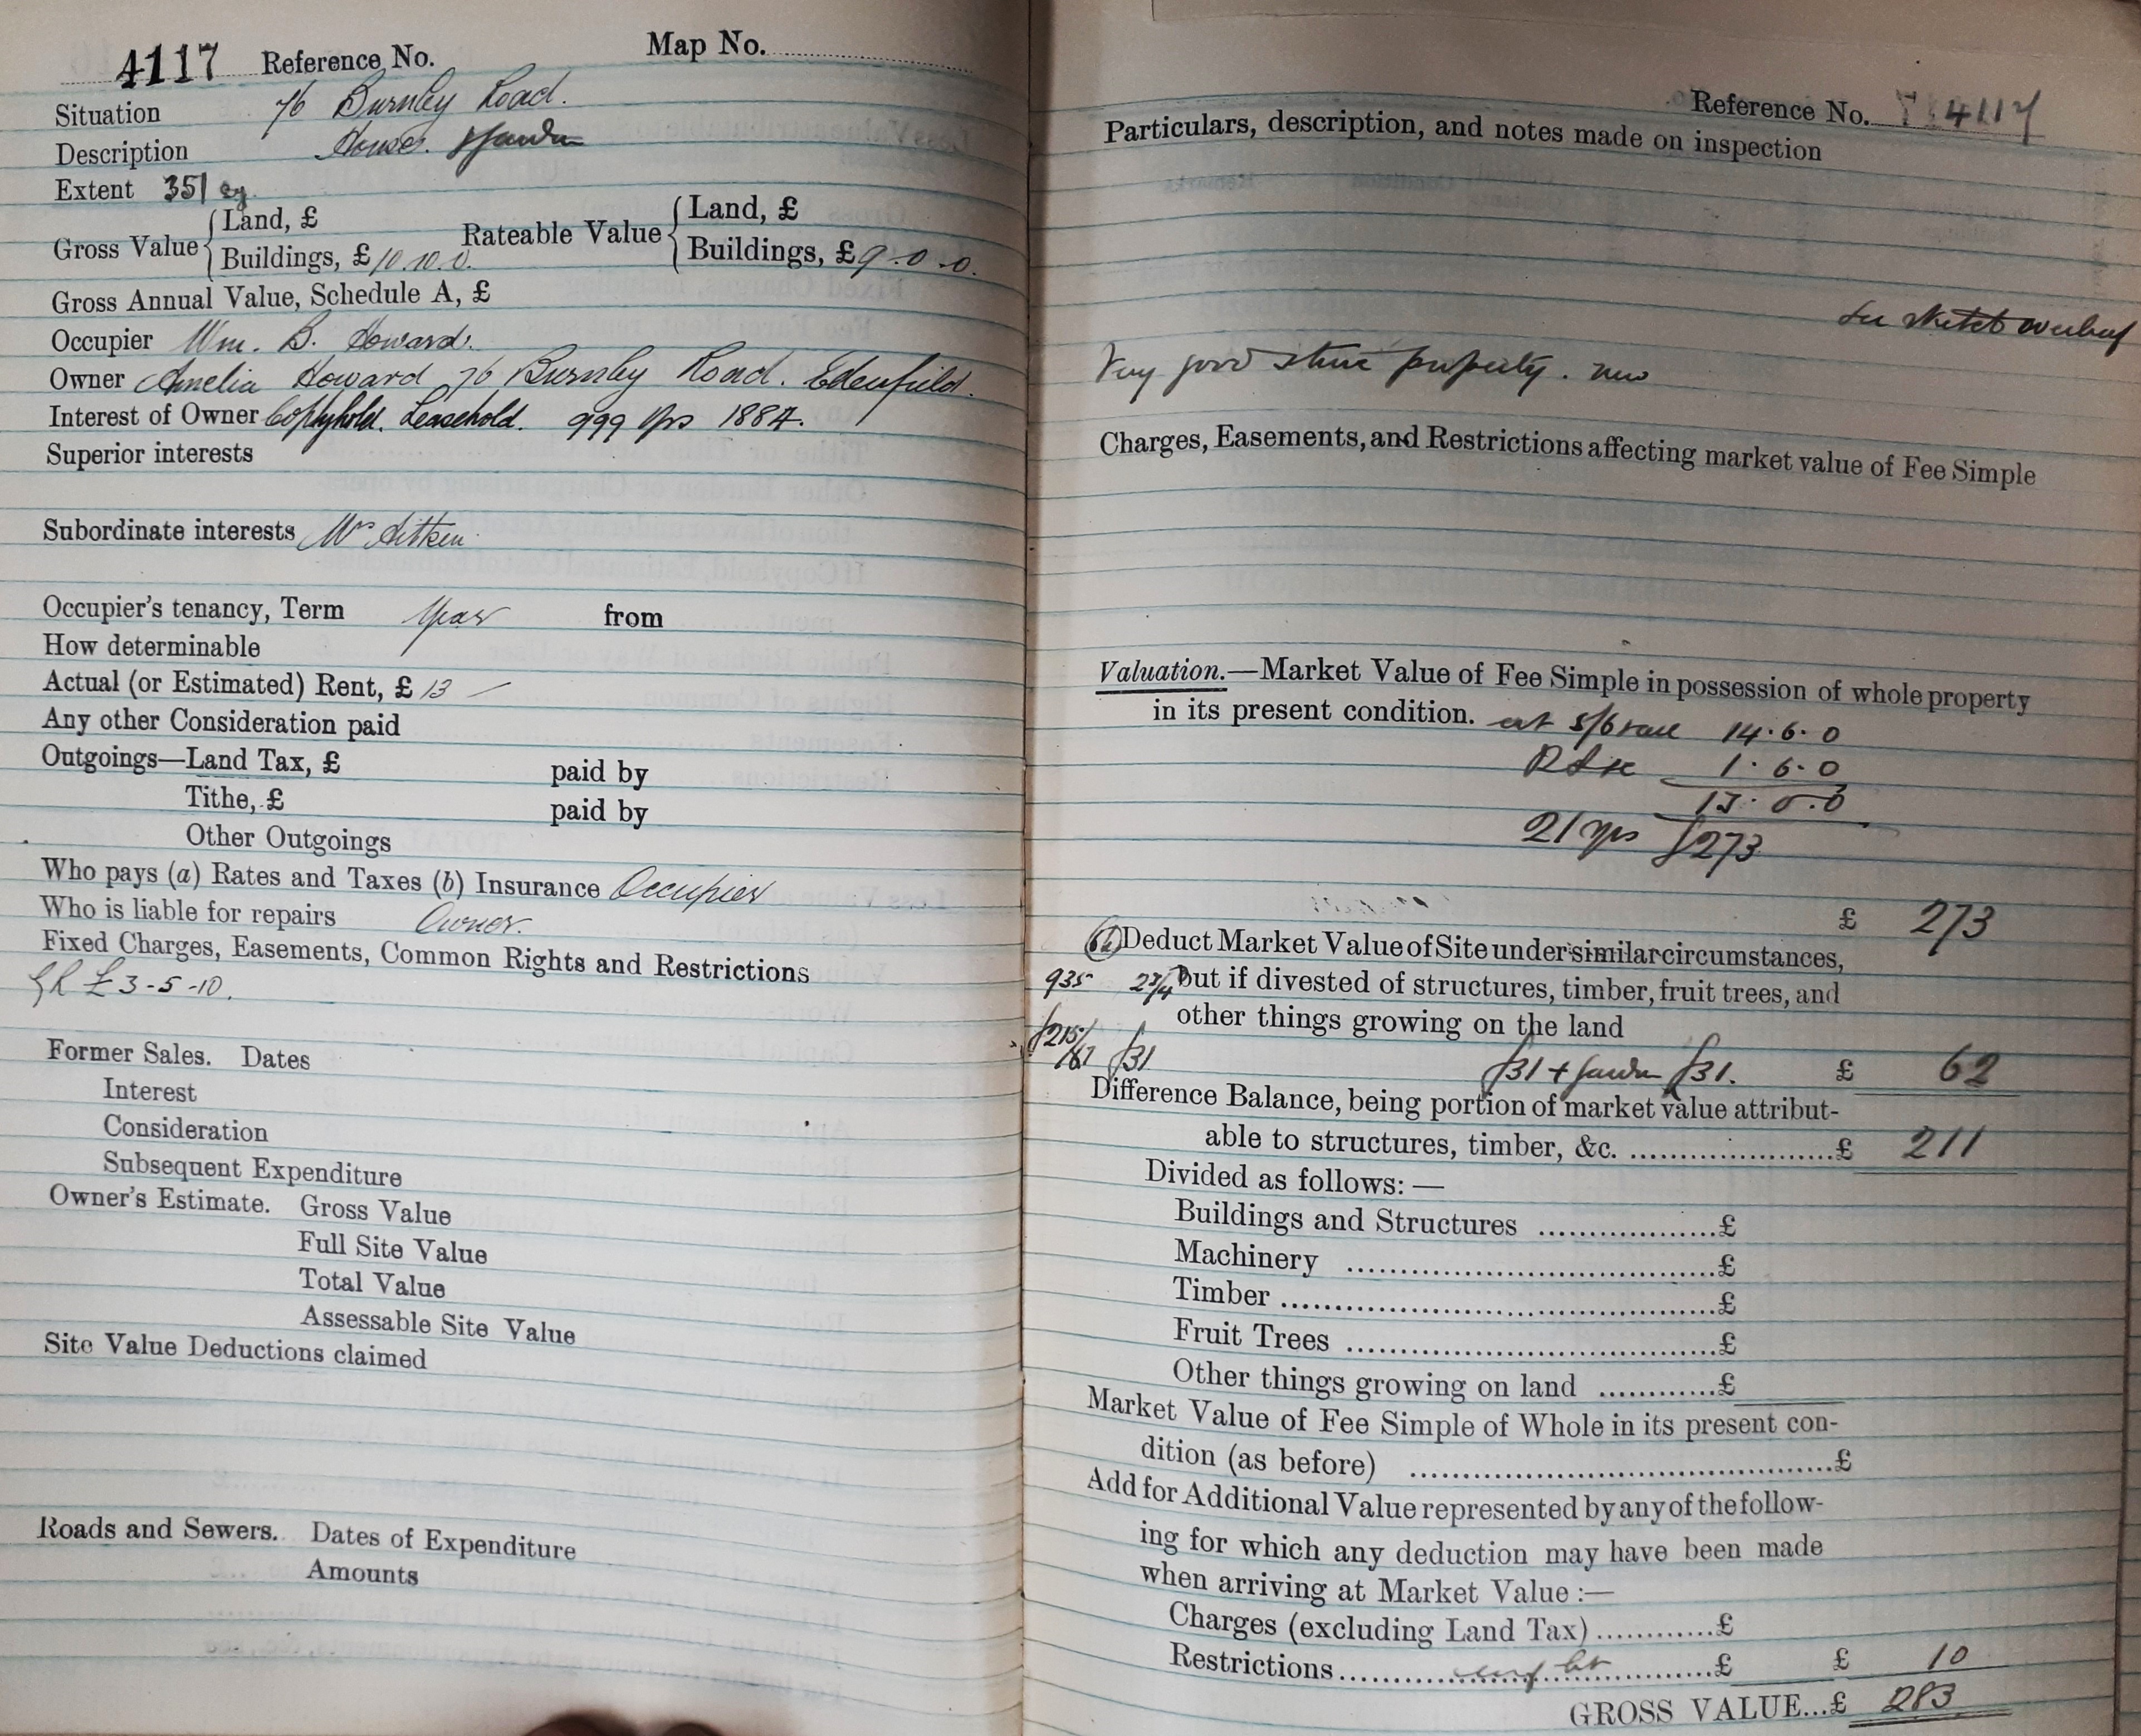 4117 Reference No. Map No.
Situation 76 Burnley Road.
Description House. & Garden
Extent 351 sq
Gross Value { Land, £
Buildings, £ 10.10.0.
Rateable Value { Land, £
Buildings, £ 9.0.0.
Gross Annual Value, Schedule A, £
Occupier Wm. B. Howard.
Owner Amelia Howard 76 Burnley Road. Edenfield.
Interest of Owner Copyhold. Leasehold. 999 yrs 1884.
Superior interests
Subordinate interests Mr Aitken
Occupier's tenancy, Term Year from
How determinable
Actual (or Estimated) Rent, £ 13 —
Any other Consideration paid
Outgoings—Land Tax, £ paid by
Tithe, £ paid by
Other Outgoings
Who pays (a) Rates and Taxes (b) Insurance Occupier
Who is liable for repairs Owner.
Fixed Charges, Easements, Common Rights and Restrictions
GR £3-5-10.
Former Sales. Dates
Interest
Consideration
Subsequent Expenditure
Owner's Estimate. Gross Value
Full Site Value
Total Value
Assessable Site Value
Site Value Deductions claimed
Roads and Sewers. Dates of Expenditure
Amounts
Reference No. 4117
Particulars, description, and notes made on inspection
See sketch overleaf
Very good stone property. new
Charges, Easements, and Restrictions affecting market value of Fee Simple
Valuation.—Market Value of Fee Simple in possession of whole property
in its present condition. at 5/6 14.6.0
1.6.0
13.0.0
21 yrs £273
£ 273
Deduct Market Value of Site under similar circumstances,
935 2¾ but if divested of structures, timber, fruit trees, and
other things growing on the land
£215/ £31 £31 + garden £31. £ 62
Difference Balance, being portion of market value attribut-
able to structures, timber, &c. ......£ 211
Divided as follows:—
Buildings and Structures ......£
Machinery ......£
Timber ......£
Fruit Trees ......£
Other things growing on land ......£
Market Value of Fee Simple of Whole in its present con-
dition (as before) ......£
Add for Additional Value represented by any of the follow-
ing for which any deduction may have been made
when arriving at Market Value :—
Charges (excluding Land Tax) ......£
Restrictions ......£ £ 10
GROSS VALUE...£ 283